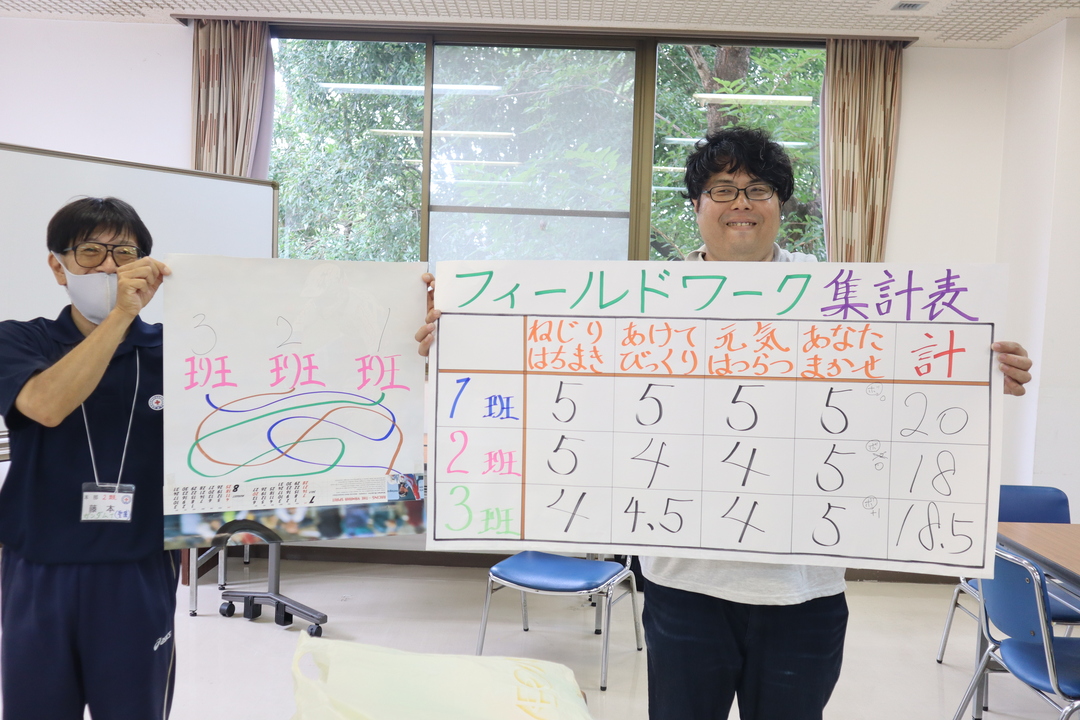 3 2 1
班 班 班
藤本
フィールドワーク 集計表
ねじり はちまき あけて びっくり 元気 はつらつ あなた まかせ 計
1班 5 5 5 5 20
2班 5 4 4 5 18
3班 4 4.5 4 5 18.5